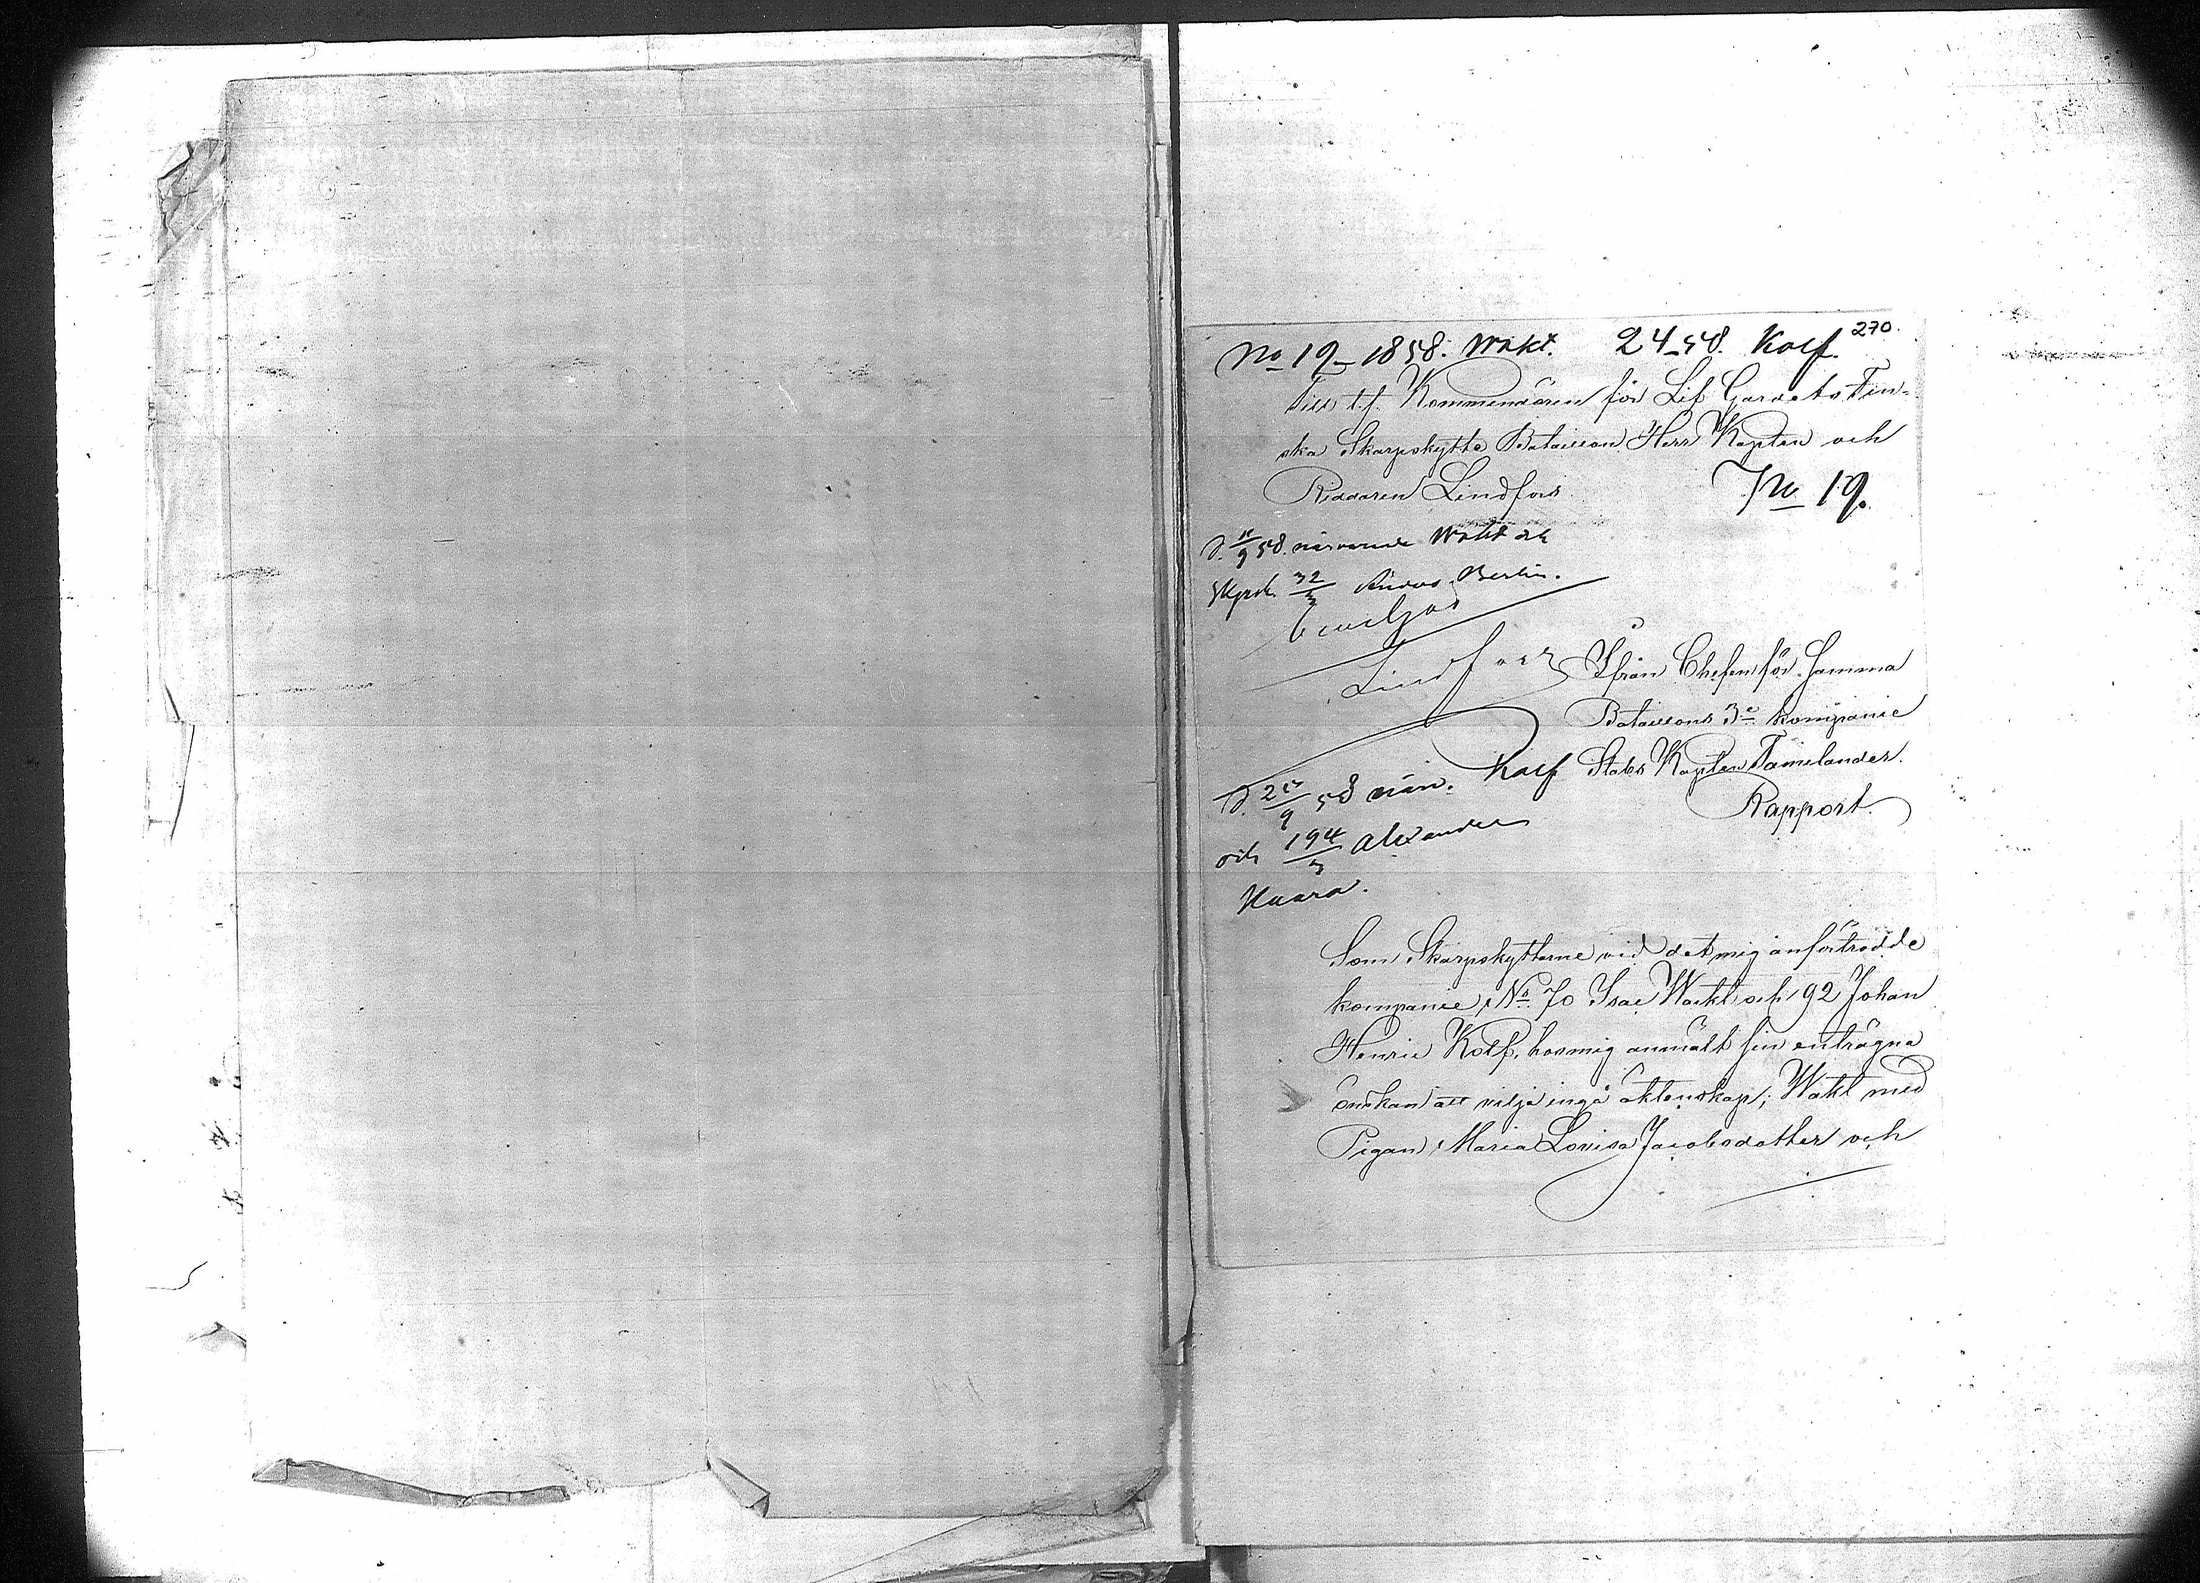 270.
No 19_1858. Wakt. 24_58. Kolf.
Till t.f. Kommendören för Lif Gardets Fin-
ska Skarpskytte Bataillon Herr Kapten och
Riddaren Lindfors
No 19.
d. 11/9 58. närvarande Wakt och
Skpsk 32/3 Anders Berlin.
beviljas
Lindfors
Ifrån Chefen för Samma
Bataillons 3e kompanie
Stabs Kapten Taimelander.
Rapport.
d. 25/9 58 närv. Kolf
och 194/3 Alexander
Kuara.
Som Skarpskyttarne vid det mig anförtrodde
kompanie, No 70 Isac Wakt och 92 Johan
Henric Kolf, hos mig anmält sin enträgna
önskan att vilja ingå äktenskap; Wakt med
Pigan Maria Lovisa Jacobsdotter och